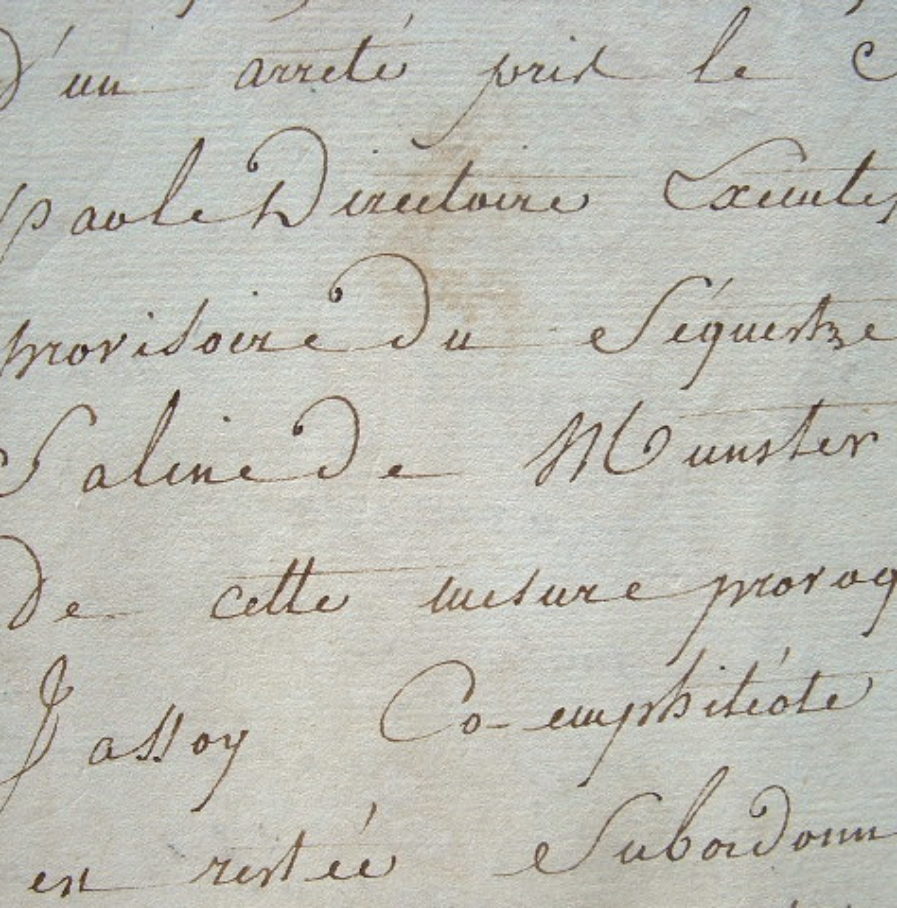 d'un arreté pris le
par le Directoire Executif
provisoire du Séquestre
Saline de Munster
De cette mesure provoq
Jassoy Co-emphitéote
est restée Subordonn